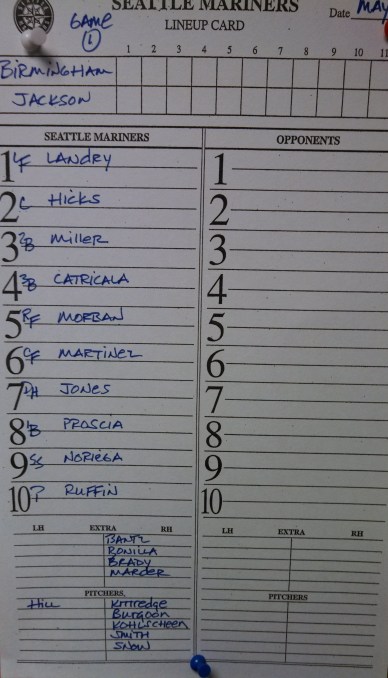 SEATTLE MARINERS
LINEUP CARD
Date MAY
GAME
1
1 2 3 4 5 6 7 8 9 10 11
BIRMINGHAM
JACKSON
SEATTLE MARINERS
1 LF LANDRY
2 C HICKS
3 2B MILLER
4 3B CATRICALA
5 RF MORBAN
6 CF MARTINEZ
7 DH JONES
8 1B PROSCIA
9 SS NORIEGA
10 P RUFFIN
LH EXTRA RH
BANTZ
RONILLA
BRADY
MARDER
PITCHERS
Hill Kittredge
Burgoon
KOHLSCHEEN
SMITH
SNOW
OPPONENTS
1
2
3
4
5
6
7
8
9
10
LH EXTRA RH
PITCHERS